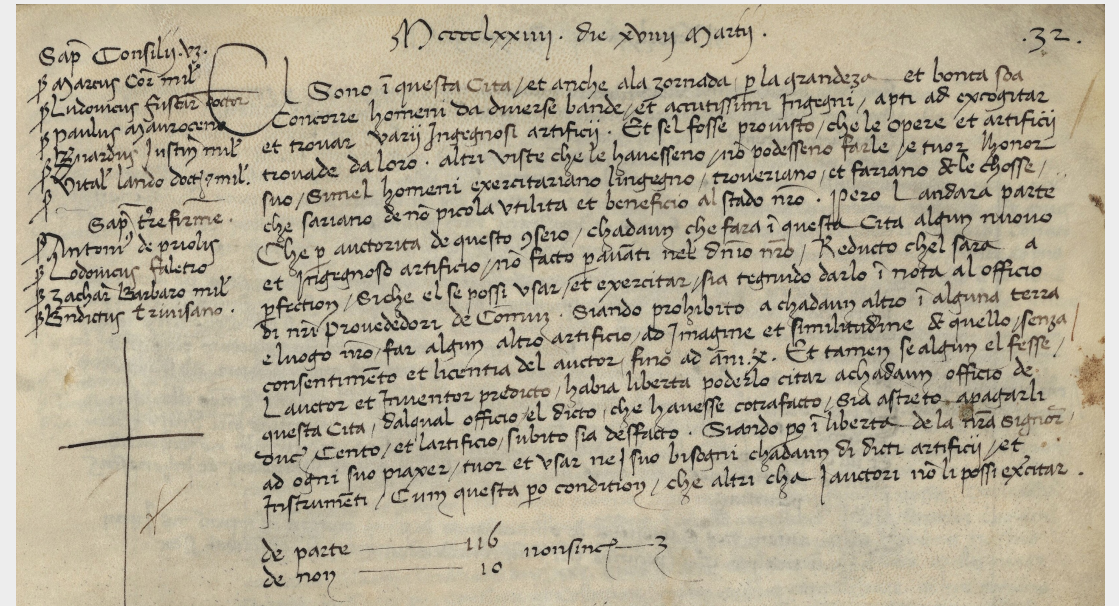 Mcccclxxiiii. die xviiii Martij.
.32.
Sapⁿ̄ Consilij. vꝫ.
ꝑ Marcus Cor̄ mił
ꝑ Ludovicus fuscar̄ doctor
ꝑ paulus Maurocenꝯ
ꝑ Bn̄ardus Justin̄ mił
ꝑ Vital' lando doct. ⁊ mił.
ꝑ
Sap̄ t're firme.
ꝑ Antoni' de priolis
ꝑ Lodovicus faletro
ꝑ Zachar̄ Barbaro mił
ꝑ Bn̄dictus trivisano.
El Sono ī questa Cita, et anche ala zornada, ꝑ la grandeza et bonta soa
Concorre homeni da diverse bande, et accutissimi Ingegni, apti ad excogitar
et trovar varij Ingegnosi artificij. Et sel fosse provisto, che le opere, et artificij
trovade da loro. altri viste che le havesseno, nō podesseno farle, e tuor lhonor
suo, Simel homeni exercitariano lingegno, troveriano, et fariano de le chosse,
che sariano de nō picola utilita et beneficio al stado nr̄o. Pero L andara parte
Che ꝑ auctorita de questo ꝯseio, chadaun che fara ī questa Cita algun nuovo
et Ingegnoso artificio, nō facto ꝑ avāti nel dn̄io nr̄o, Reducto chel sara a
ꝑfection, Siche el se possi usar, et exercitar, sia tegnudo darlo ī nota al officio
di nr̄i Provededori de Comun. Siando prohibito a chadaun altro ī alguna terra
e luogo nr̄o, far algun altro artificio, ad Imagine et similitudine de quello, senza
consentimēto et licentia del auctor, fino ad ani. x. Et tamen se algun el fesse,
L auctor et Inventor predicto, habia liberta poderlo citar a chadaun officio de
questa Cita, dal qual officio, el dicto, che havesse cōtrafacto, sia astreto apagarli
duc' Cento, et lartificio, subito sia desfacto. Siando po ī liberta de la nr̄a Signor̄,
ad ogni suo piaxer, tuor et usar nei suo bisogni chadaun di dicti artificij, et
Instrumēti, Cum questa po condition, che altri cha i auctori nō li possi ex'citar.
de parte 116
de non 10
non sinc' 3